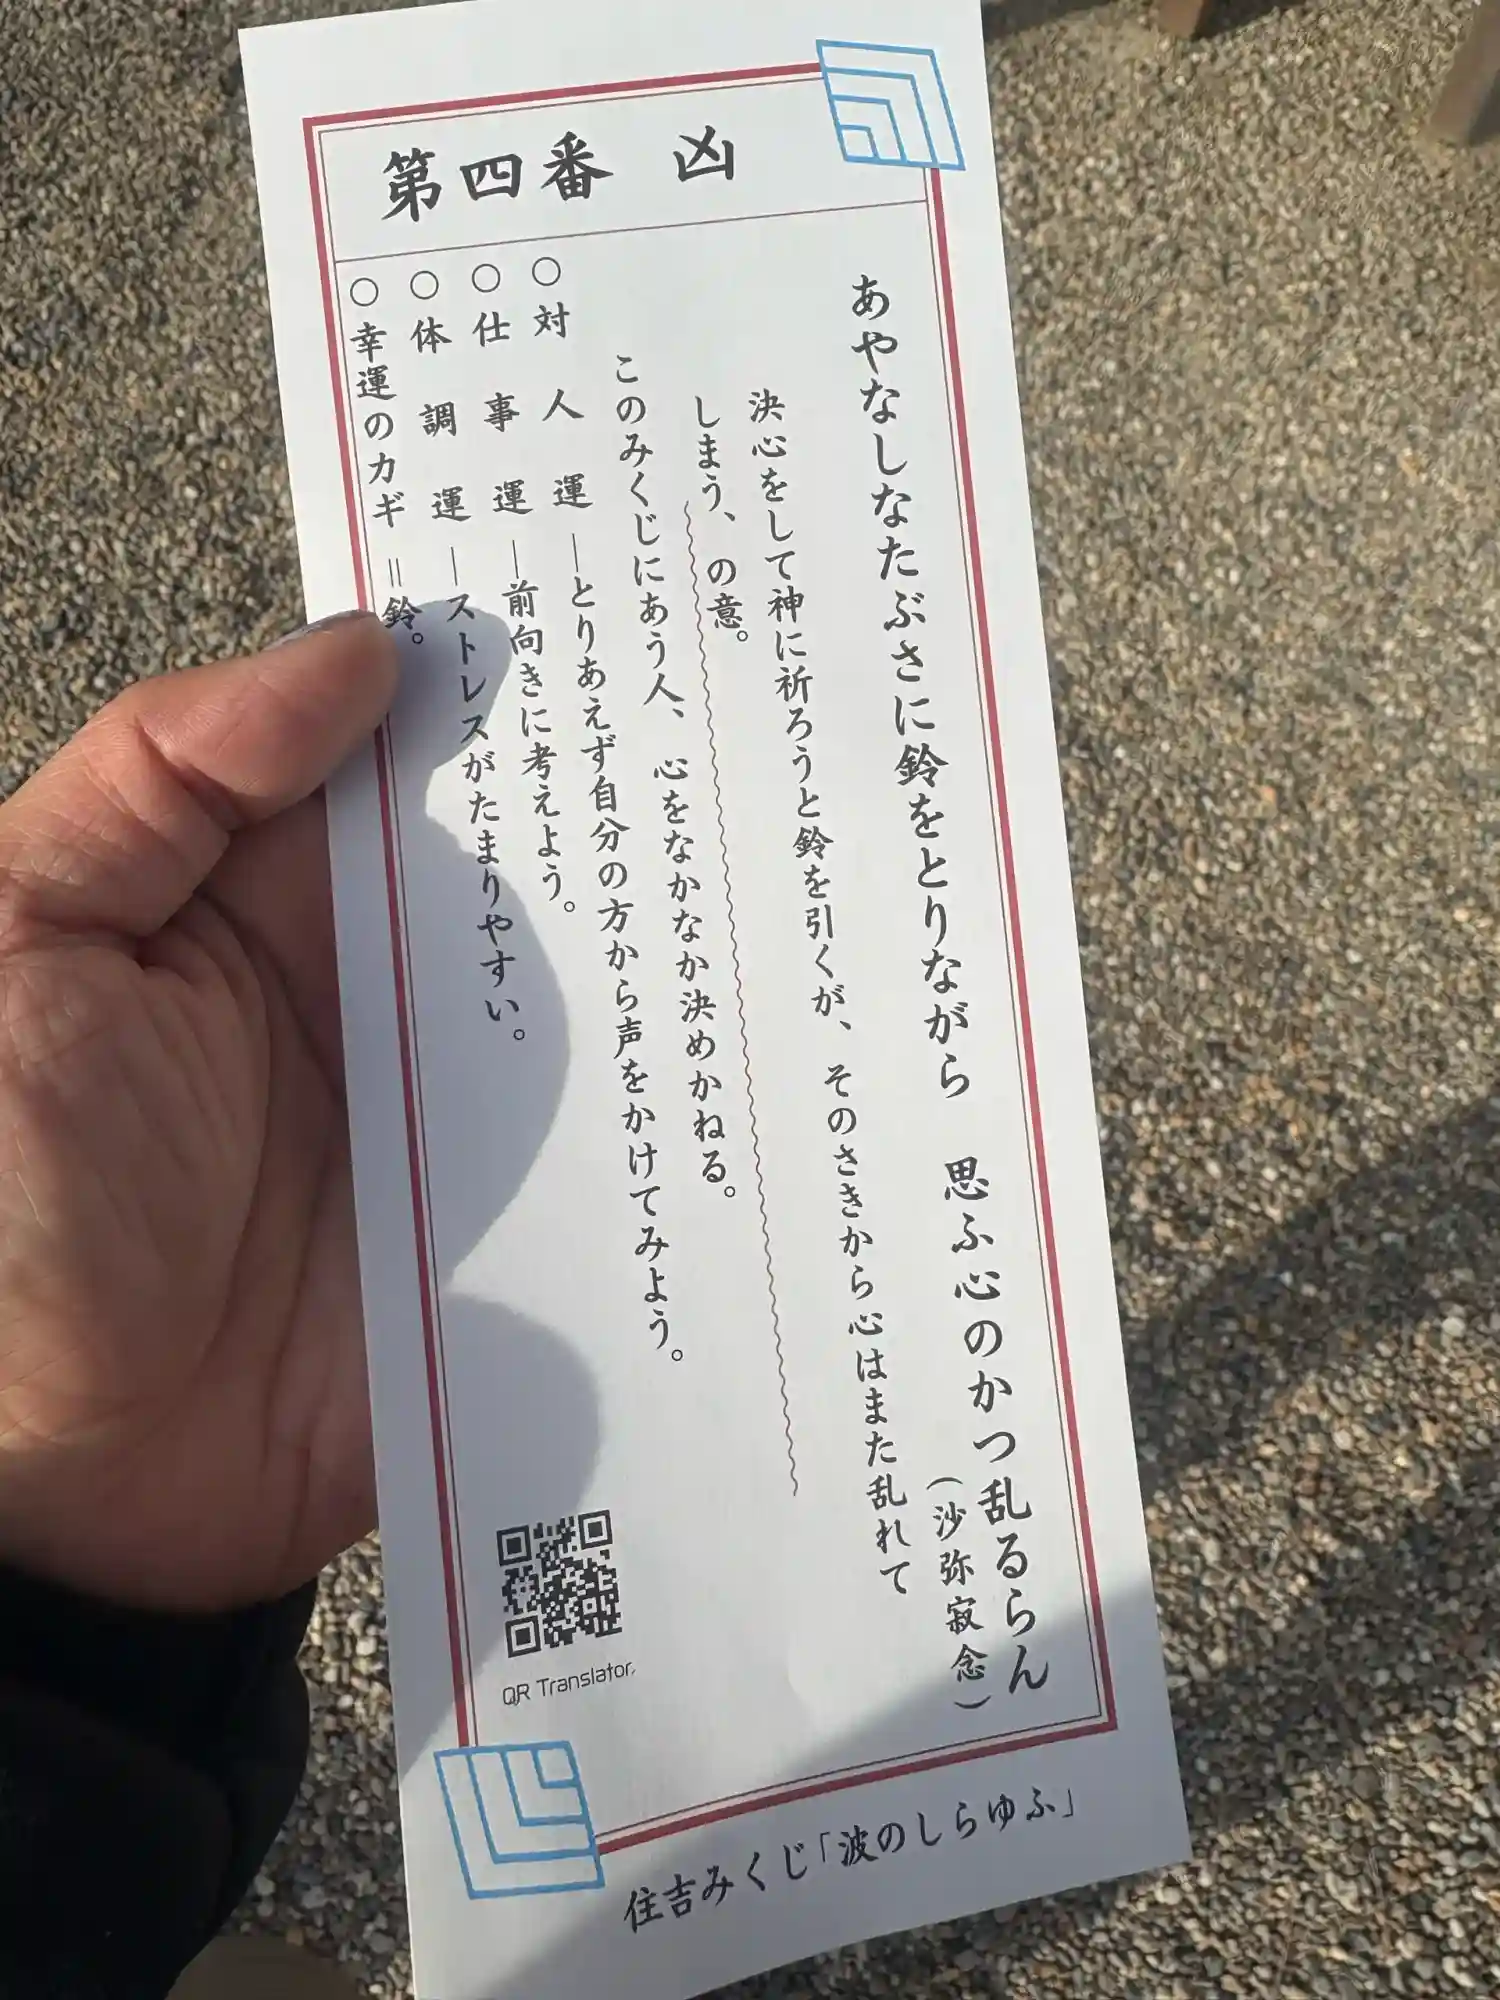 第四番 凶
あやなしなたぶさに鈴をとりながら 思ふ心のかつ乱るらん
(沙弥寂念)
決心をして神に祈ろうと鈴を引くが、そのさきから心はまた乱れて
しまう、の意。
このみくじにあう人、心をなかなか決めかねる。
○対人運―とりあえず自分の方から声をかけてみよう。
○仕事運―前向きに考えよう。
○体調運―ストレスがたまりやすい。
○幸運のカギ=鈴。
QR Translator
住吉みくじ「波のしらゆふ」